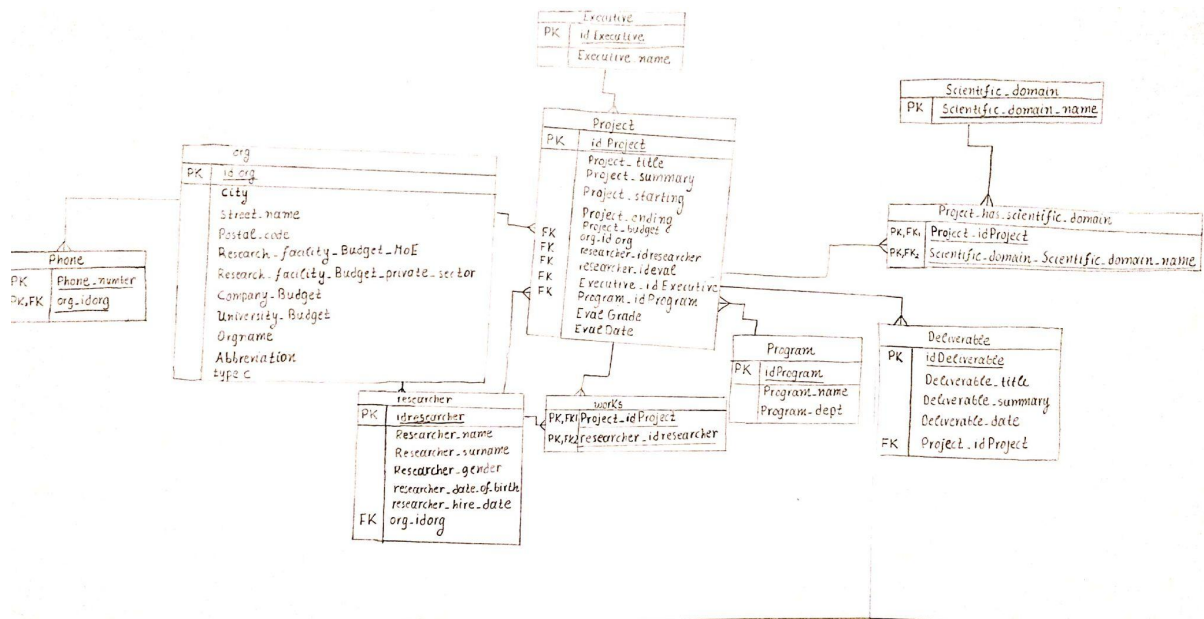 Executive
PK id Executive
Executive_name
Scientific_domain
PK Scientific_domain_name
Project
PK id Project
Project_title
Project_summary
Project_starting
Project_ending
Project_budget C
FK org-id org
FK researcher-idresearcher
FK researcher_ideval
FK Executive_idExecutive
FK Program_idProgram
Eval Grade
Eval Date
org
PK id org
City
Street_name
Postal_code
Research_facility_Budget_MoE
Research_facility_Budget_private_sector
Company_Budget
University_Budget
Orgname
Abbreviation
type C
Phone
PK Phone_number
PK,FK org_idorg
Project_has_scientific_domain
PK,FK1 Project_idProject
PK,FK2 Scientific_domain_Scientific_domain_name
Program
PK idProgram
Program_name
Program_dept
Deliverable
PK idDeliverable
Deliverable_title
Deliverable_summary
Deliverable_date
FK Project_idProject
researcher
PK idresearcher
Researcher_name
Researcher_surname
Researcher_gender
researcher_date_of_birth
researcher_hire_date
FK org_idorg
works
PK,FK1 Project_idProject
PK,FK2 researcher_idresearcher